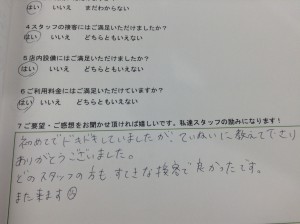 はい　いいえ　まだわからない
4 スタッフの接客にはご満足いただけましたか？
はい　いいえ　どちらともいえない
5 店内設備にはご満足いただけましたか？
はい　いいえ　どちらともいえない
6 ご利用料金にはご満足いただけていますか？
はい　いいえ　どちらともいえない
7 ご要望・ご感想をお聞かせ頂ければ嬉しいです。私達スタッフの励みになります！
初めてでドキドキしていましたが、ていねいに教えて下さり
ありがとうございました。
どのスタッフの方も すてきな接客で良かったです。
また来ます